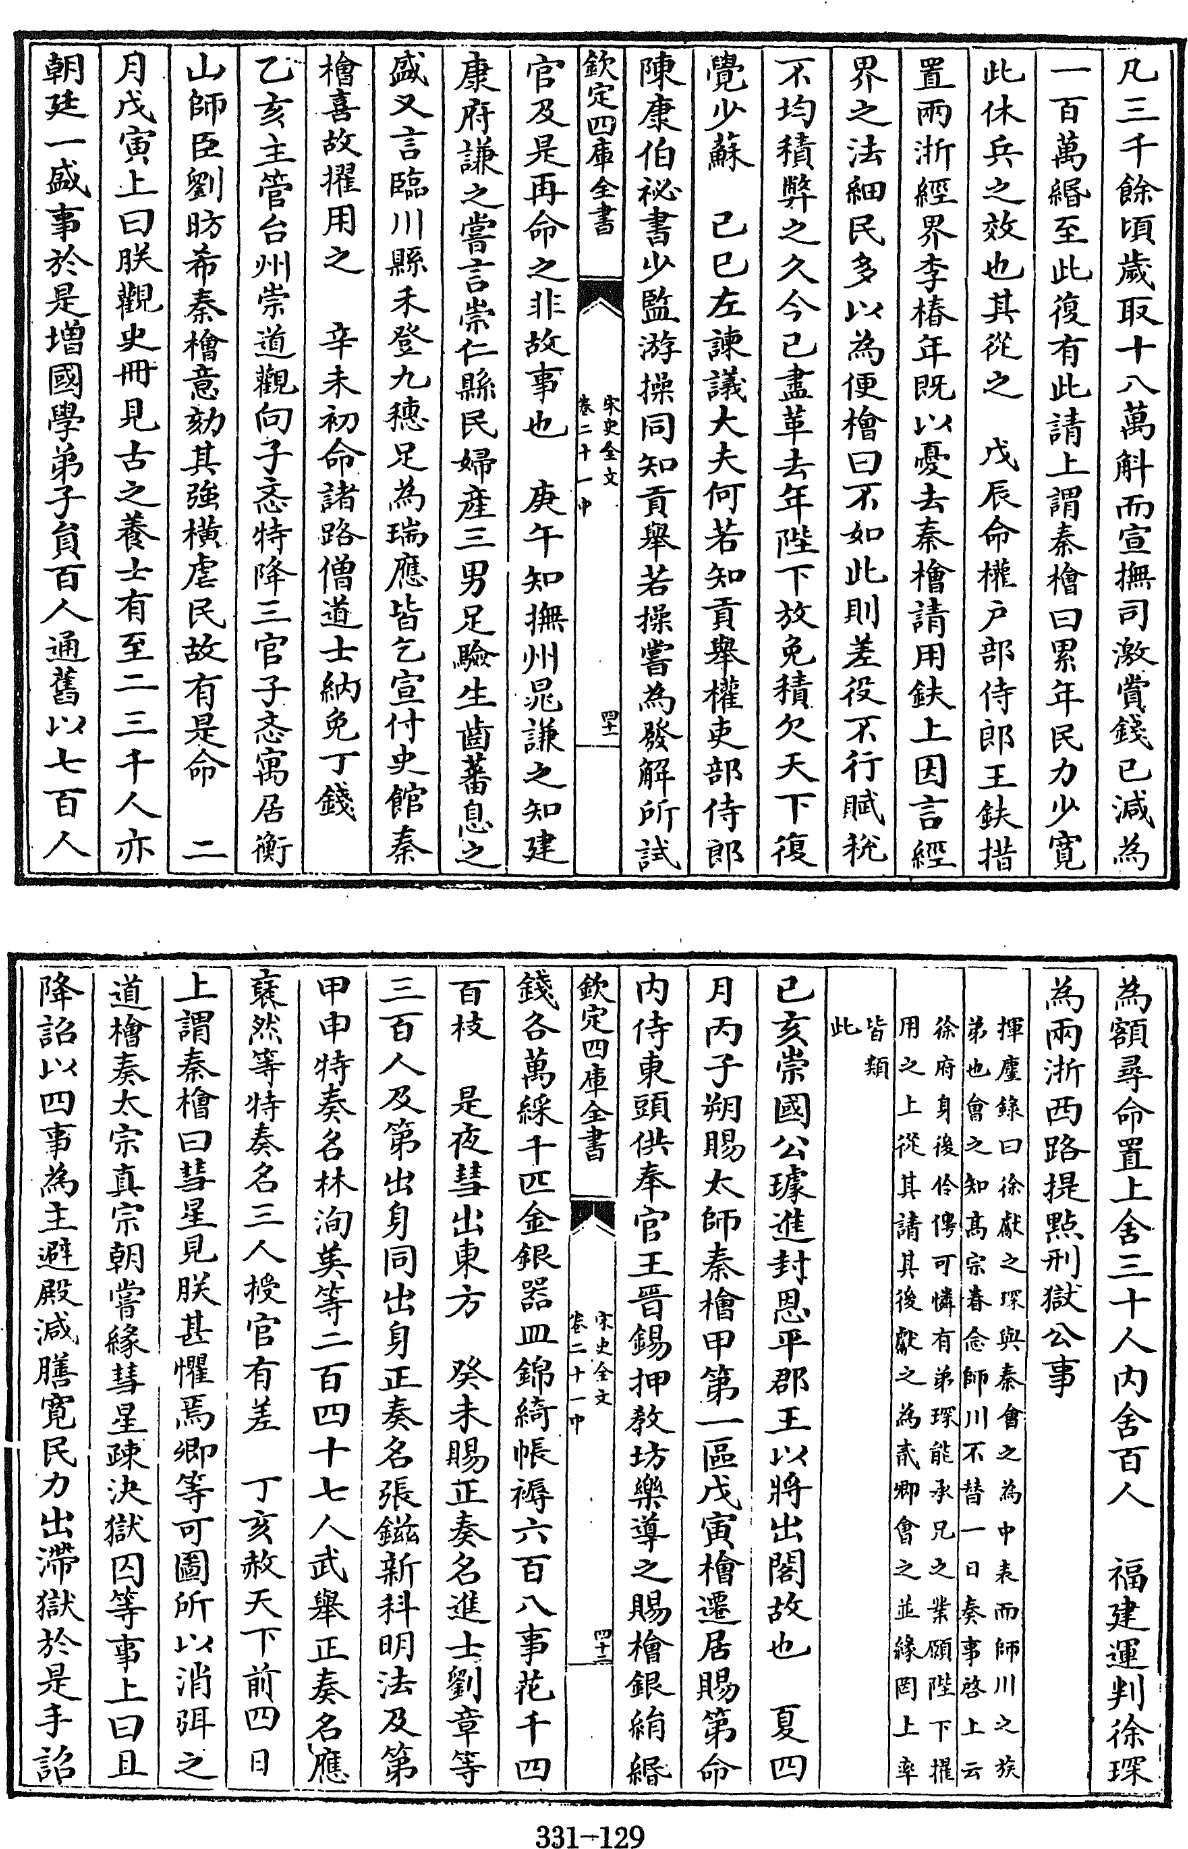 凡三千餘頃歲取十八萬斛而宣撫司激賞錢已減為
一百萬緡至此復有此請上謂秦檜曰累年民力少寛
此休兵之效也其從之　戊辰命權户部侍郎王鈇措
置兩浙經界李椿年既以憂去秦檜請用鈇上因言經
界之法細民多以為便檜曰不如此則差役不行賦稅
不均積弊之久今已盡革去年陛下放免積欠天下復
覺少蘇　己巳左諫議大夫何若知貢舉權吏部侍郎
陳康伯祕書少監游操同知貢舉若操嘗為發解所試
欽定四庫全書
宋史全文
卷二十一中
四十一
官及是再命之非故事也　庚午知撫州晁謙之知建
康府謙之嘗言崇仁縣民婦產三男足驗生齒蕃息之
盛又言臨川縣禾登九穗足為瑞應皆乞宣付史館秦
檜喜故擢用之　辛未初命諸路僧道士納免丁錢
乙亥主管台州崇道觀向子忞特降三官子忞寓居衡
山師臣劉昉希秦檜意劾其強橫虐民故有是命　二
月戊寅上曰朕觀史冊見古之養士有至二三千人亦
朝廷一盛事於是增國學弟子員百人通舊以七百人
為額尋命置上舍三十人内舍百人　福建運判徐琛
為兩浙西路提點刑獄公事
揮麈錄曰徐獻之琛與秦會之為中表而師川之族
弟也會之知髙宗眷念師川不替一日奏事啓上云
徐府身後伶俜可憐有弟琛能承兄之業願陛下擢
用之上從其請其後獻之為貳卿會之並緣罔上率
皆類
此
己亥崇國公璩進封恩平郡王以將出閤故也　夏四
月丙子朔賜太師秦檜甲第一區戊寅檜遷居賜第命
内侍東頭供奉官王晉錫押教坊樂導之賜檜銀絹緡
錢各萬綵千匹金銀器皿錦綺帳褥六百八事花千四
欽定四庫全書
宋史全文
卷二十一中
四十二
百枝　是夜彗出東方　癸未賜正奏名進士劉章等
三百人及第出身同出身正奏名張鎡新科明法及第
甲申特奏名林洵美等二百四十七人武舉正奏名應
襄然等特奏名三人授官有差　丁亥赦天下前四日
上謂秦檜曰彗星見朕甚懼焉卿等可圖所以消弭之
道檜奏太宗真宗朝嘗緣彗星疎決獄囚等事上曰且
降詔以四事為主避殿減膳寛民力出滯獄於是手詔
331-129